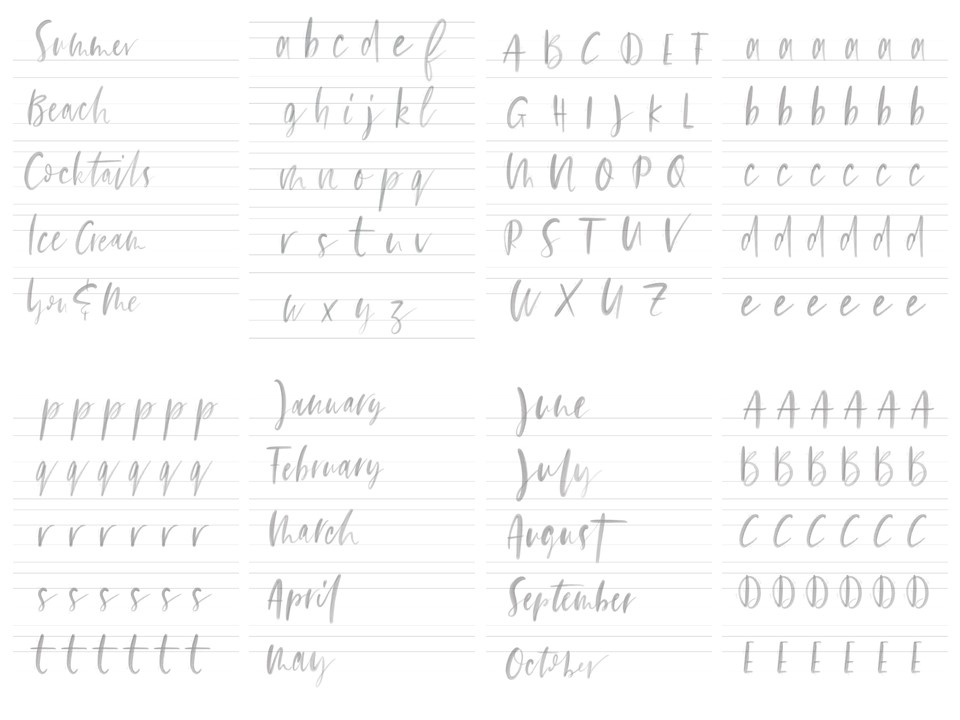 Summer
Beach
Cocktails
Ice Cream
You & Me
a b c d e f
g h i j k l
m n o p q
r s t u v
w x y z
A B C D E F
G H I J K L
M N O P Q
R S T U V
W X Y Z
a a a a a a
b b b b b b
c c c c c c
d d d d d d
e e e e e e
p p p p p p
q q q q q q
r r r r r r
s s s s s s
t t t t t t
January
February
March
April
May
June
July
August
September
October
A A A A A A
B B B B B B
C C C C C C
D D D D D D
E E E E E E